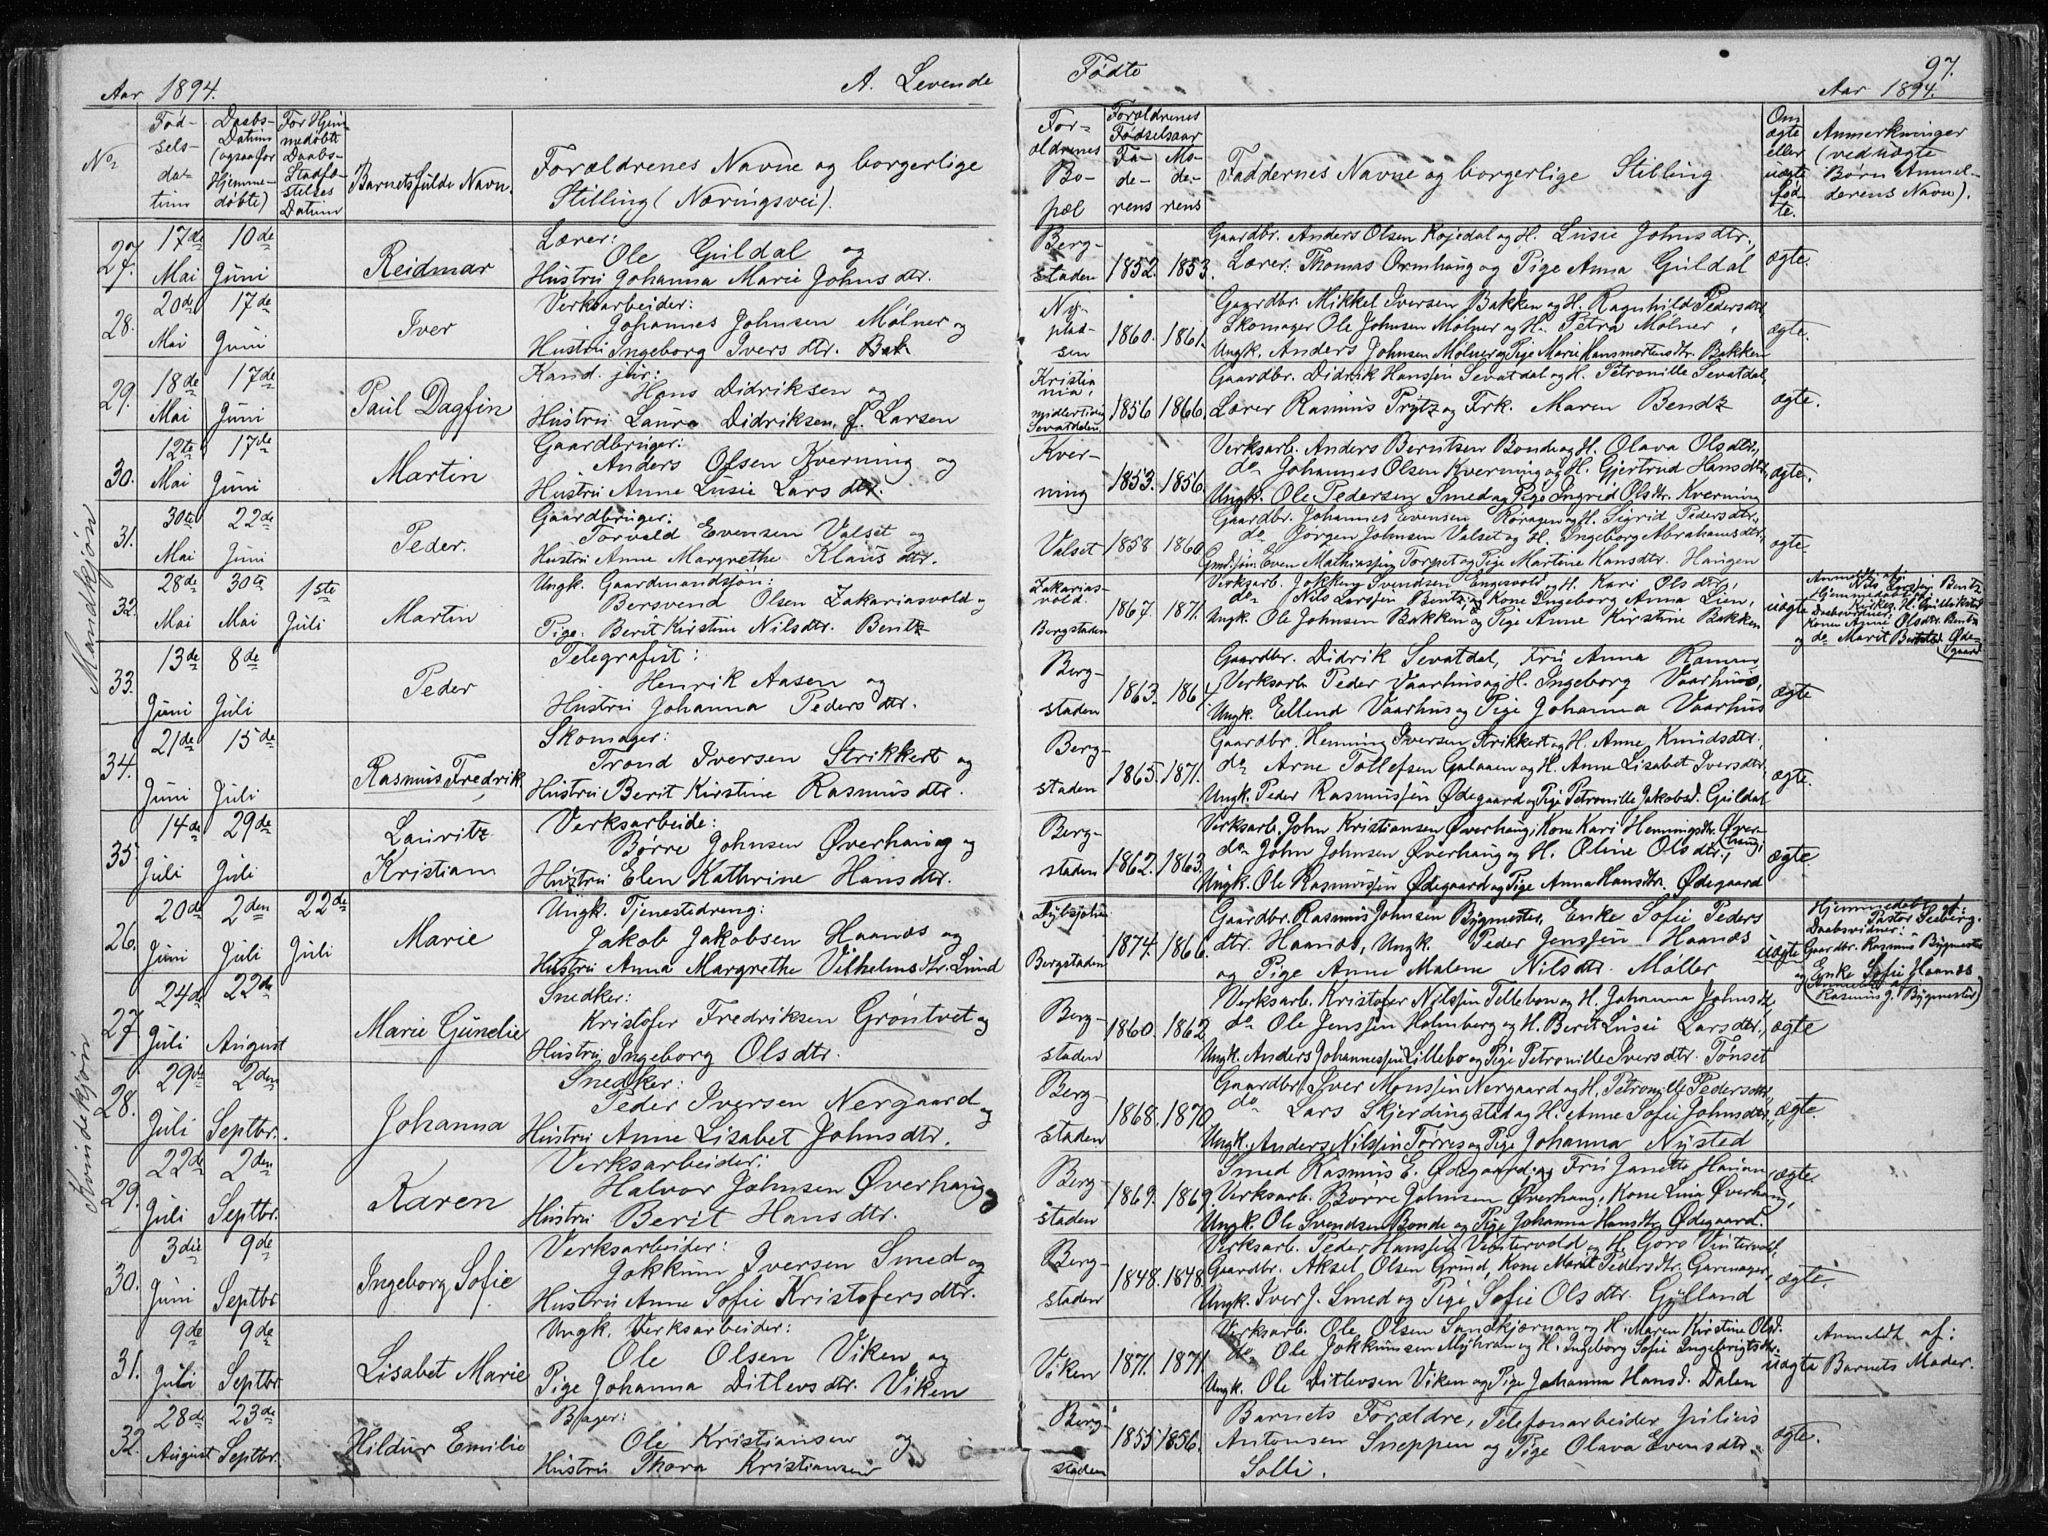 Aar 1894. A. Levende
Født-
sels-
da-
tum
Daabs-
Datum
(ogsaa for
Hjemme-
døbte)
For Hjem-
medøbte
Daabs-
Stadfæ-
stelses
Datum
No
Barnets fulde Navn.
Forældrenes Navne og borgerlige
Stilling (Næringsvei).
Mandkjøn
27. 17de Mai 10de Juni Reidmar
Lærer:
Ole Guldal og
Hustru Johanna Marie Johnsdtr.
28. 20de Mai 17de Juni Iver
Verksarbeider:
Johannes Johnsen Mølner og
Hustru Ingeborg Iversdtr. Bak
29. 18de Mai 17de Juni Paul Dagfin
Kand. jur:
Hans Didriksen og
Hustru Laura Didriksen, f. Larsen
30. 12te Mai 17de Juni Martin
Gaardbruger:
Anders Olsen Kverning og
Hustru Anne Lusie Larsdtr.
31. 30te Mai 22de Juni Peder.
Gaardbruger:
Torvald Evensen Valset og
Hustru Anne Margrethe Klausdtr.
32. 28de Mai 30te Mai 1ste Juli Martin
Ungk. Gaardmandssøn:
Bersvend Olsen Zakariasvold og
Pige. Berit Kirstine Nilsdtr. Bentz
33. 13de Juni 8de Juli Peder
Telegrafist:
Henrik Aasen og
Hustru Johanna Pedersdtr.
34. 21de Juni 15de Juli Rasmus Fredrik
Skomager:
Trond Iversen Strikkert og
Hustru Berit Kirstine Rasmusdtr.
35. 14de Juli 29de Juli Lauritz Kristian
Verksarbeide:
Børre Johnsen Øverhaug og
Hustru Elen Kathrine Hansdtr.
Kvindekjøn
26. 20de Juni 2den Juli 22de Juli Marie
Ungk. Tjenestedreng:
Jakob Jakobsen Haanæs og
Hustru Anna Margrethe Vilhelmsdtr. Lund
27. 24de Juli 22de August Marie Gunelie
Snedker:
Kristofer Fredriksen Grøntvet og
Hustru Ingeborg Olsdtr.
28. 29de Juli 2den Septbr. Johanna
Snedker:
Peder Iversen Nergaard og
Hustru Anne Lisabet Johnsdtr.
29. 22de Juli 2den Septbr. Karen
Verksarbeider:
Halvor Johnsen Øverhaug og
Hustru Berit Hansdtr.
30. 3die Juni 9de Septbr Ingeborg Sofie
Verksarbeider:
Jokkum Iversen Smed og
Hustru Anne Sofie Kristofersdtr.
31. 9de Juli 9de Septbr Lisabet Marie
Ungk. Verksarbeider:
Ole Olsen Viken og
Pige Johanna Ditlevsdtr. Viken
32. 28de August 23de Septbr. Hildur Emilie
Bager:
Ole Kristiansen og
Hustru Thora Kristiansen
Fødte 97.
Aar 1894.
For-
ældrenes
Bo-
pæl
Forældrenes
Fødselsaar
Fa-
de-
rens
Mo-
de-
rens
Faddernes Navne og borgerlige Stilling
Om
ægte
eller
uægte
fød-
te.
Anmerkninger
(ved uægte
Børn Anmel-
derens Navn).
Berg-
staden 1852. 1853.
Gaardbr. Anders Olsen Kojedal og H. Lusie Johnsdtr.,
Lærer Thomas Ormhaug og Pige Anna Guldal
ægte.
Ny-
plad-
sen 1860. 1861.
Gaardbr. Mikkel Iversen Bakken og H. Ragnhild Pedersdtr,
Skomager Ole Johnsen Mølner og H. Petra Mølner,
Ungk. Anders Johnsen Mølner og Pige Marie Hansmortensdtr. Bakken
ægte.
Kristia
nia,
midlertidig
Sevatdalen 1856 1866.
Gaardbr. Didrik Hanssen Sevatdal og H. Petronille Sevatdal,
Lærer Rasmus Prytz og Frk. Maren Bendz
ægte.
Kver-
ning 1853. 1856.
Verksarb. Anders Berntsen Bonde og H. Olava Olsdtr.,
do Johannes Olsen Kverning og H. Gjertrud Hansdtr,
Ungk. Ole Pedersen Smed og Pige Ingrid Olsdtr. Kverning
ægte.
Valset 1858 1860
Gaardbr. Johannes Evensen Røragen og H. Sigrid Pedersdtr.,
do Jørgen Johnsen Valset og H. Ingeborg Abrahamsdtr,
Gmdssøn Even Mathiassen Torpet og Pige Martine Hansdtr. Haugen
ægte
Zakarias-
vold.
Bergstaden 1867. 1871.
Verksarb. Jokkum Svendsen Engesvold og H. Kari Olsdtr,
do Nils Larssen Bentz og Kone Ingeborg Anna Lien,
Ungk. Ole Johnsen Bakken og Pige Anne Kirstine Bakken
uægte
Anmeldt af:
Nils Larssen Bentz
Hjemmedøbt af
Daabsvidner:
Kone Anne Olsdtr. Bentz
og do Marit Øde-
gaard
Berg-
staden 1863. 1864.
Gaardbr. Didrik Sevatdal, Fru Anna
Verksarb. Peder Vaarhus og H. Ingeborg Vaarhus,
Ungk. Ellend Vaarhus og Pige Johanna Vaarhus
ægte
Berg-
staden 1865. 1871.
Gaardbr. Henning Iversen Strikkert og H. Anne Knudsdtr.
do Arne Tollefsen Galaaen og H. Anne Lisabet Iversdtr.
Ungk. Peder Rasmussen Ødegaard og Pige Petronille Jakobsd. Guldal
ægte.
Berg-
staden 1862. 1863.
Verksarb. John Kristiansen Øverhaug, Kone Kari Henningsdtr. Øver-
haug,
do John Johnsen Øverhaug og H. Oline Olsdtr.,
Ungk. Ole Rasmussen Ødegaard og Pige Anna Hansdtr. Ødegaard
ægte.
Dybsjøhn
Bergstaden 1874. 1866.
Gaardbr. Rasmus Johnsen Bygmester, Enke Sofie Peders
dtr. Haanæs, Ungk. Peder Jenssen Haanæs
og Pige Anne Malene Nilsdtr. Møller
uægte
Hjemmedøbt af
Pastor Seeberg.
Daabsvidner:
Gaardbr. Rasmus Bygmester
og Enke Sofie Haanæs
(Anmeldt af
Rasmus J. Bygmester)
Berg-
staden 1860. 1862.
Verksarb. Kristofer Nilssen Tellebon og H. Johanna Johnsdtr,
do Ole Jenssen Holmberg og H. Berit Lusie Larsdtr.,
Ungk. Anders Johannessen Lillebo og Pige Petronille Iversdtr. Tønset
ægte
Berg-
staden 1868. 1870
Gaardbr. Iver Monssen Nergaard og H. Petronille Pedersdtr,
do Lars Skjerdingstad og H. Anne Sofie Johnsdtr.,
Ungk. Anders Nilssen Tørres og Pige Johanna Nysted
ægte.
Berg-
staden 1869. 1869.
Smed Rasmus E. Ødegaard og Fru Janette Harjan
Verksarb. Børre Johnsen Øverhaug, Kone Lina Øverhaug,
Ungk. Ole Svendsen Bonde og Pige Johanna Hansdtr Ødegaard.
ægte.
Berg-
staden 1848. 1848.
Verksarb. Peder Hanssen Vintervold og H. Goro Vintervold,
Gaardbr. Aksel Olsen Grind, Kone Marit Pedersdtr. Garmager,
Ungk. Iver J. Smed og Pige Sofie Olsdtr. Gylland
ægte.
Viken 1871. 1871.
Verksarb. Ole Olsen Sandkjærnan og H. Maren Kirstine Olsd.
do Ole Jokkumsen Myhran og H. Ingeborg Sofie Ingebrigtsdtr.
Ungk. Ole Ditlevsen Viken og Pige Johanna Hansd. Dalen
uægte
Anmeldt af:
Barnets Moder.
Berg-
staden 1855 1856.
Barnets Forældre, Telefonarbeider Julius
Antonsen Sneppen og Pige Olava Evensdtr.
Solli.
ægte.